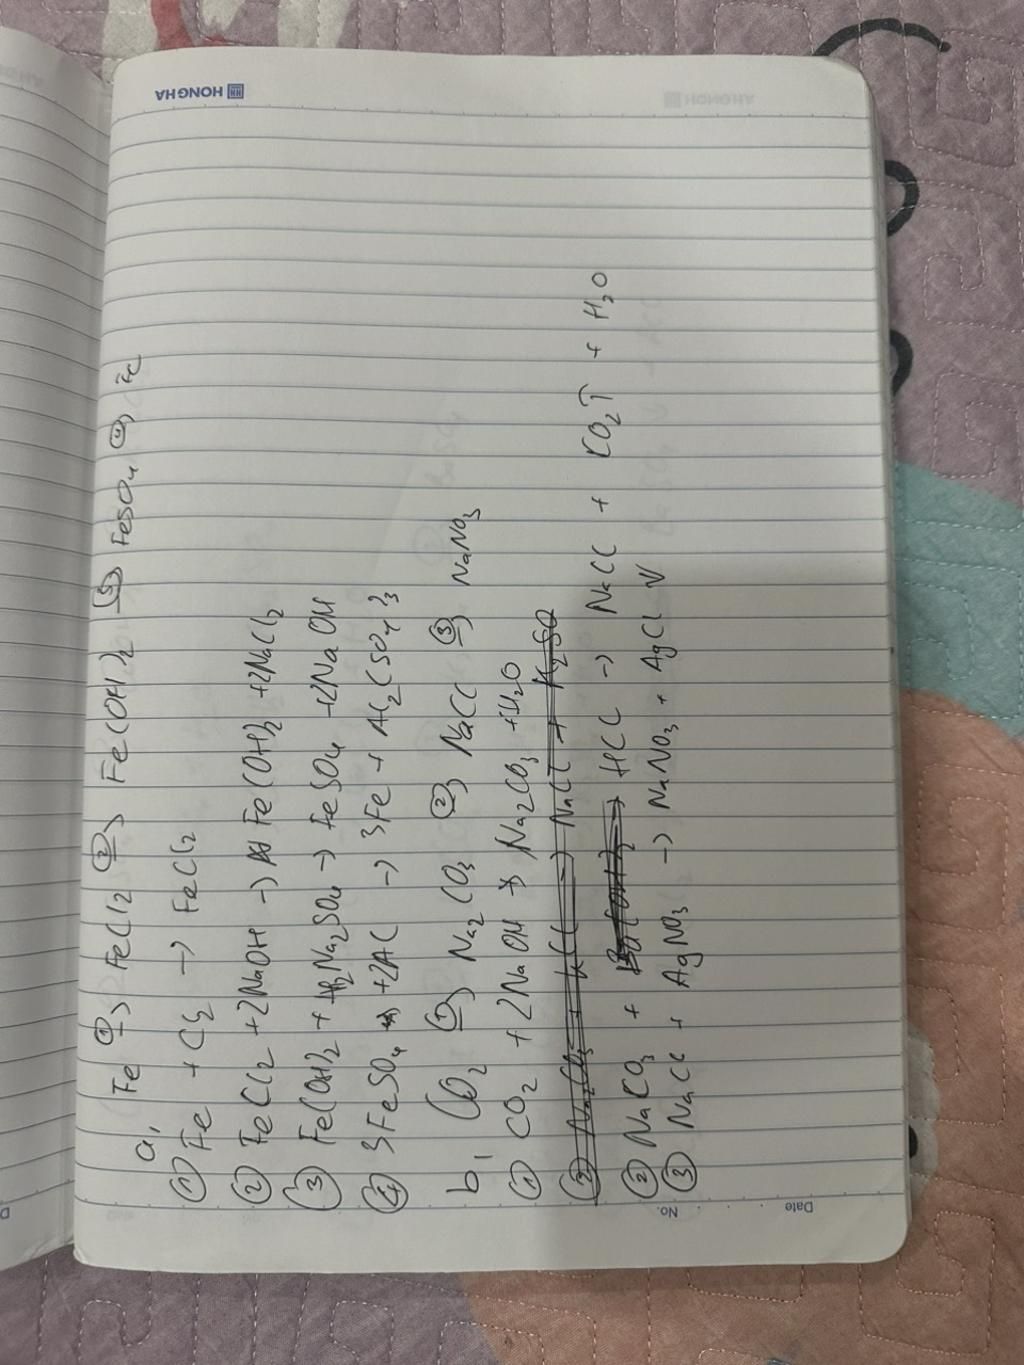 a, Fe ①→ FeCl2 ②→ Fe(OH)2 ③→ FeSO4 ④→ Fe
① Fe + Cl2 → FeCl2
② FeCl2 + 2NaOH → Fe(OH)2 + 2NaCl2
③ Fe(OH)2 + Na2SO4 → FeSO4 + 2NaOH
④ 3FeSO4 + 2Al → 3Fe + Al2(SO4)3
b, CO2 ①→ Na2CO3 ②→ NaCl ③→ NaNO3
① CO2 + 2NaOH → Na2CO3 + H2O
② Na2CO3 + HCl → NaCl + H2SO
② NaCO3 + HCl → NaCl + CO2↑ + H2O
③ NaCl + AgNO3 → NaNO3 + AgCl ↓
HONG HA
No.
Date